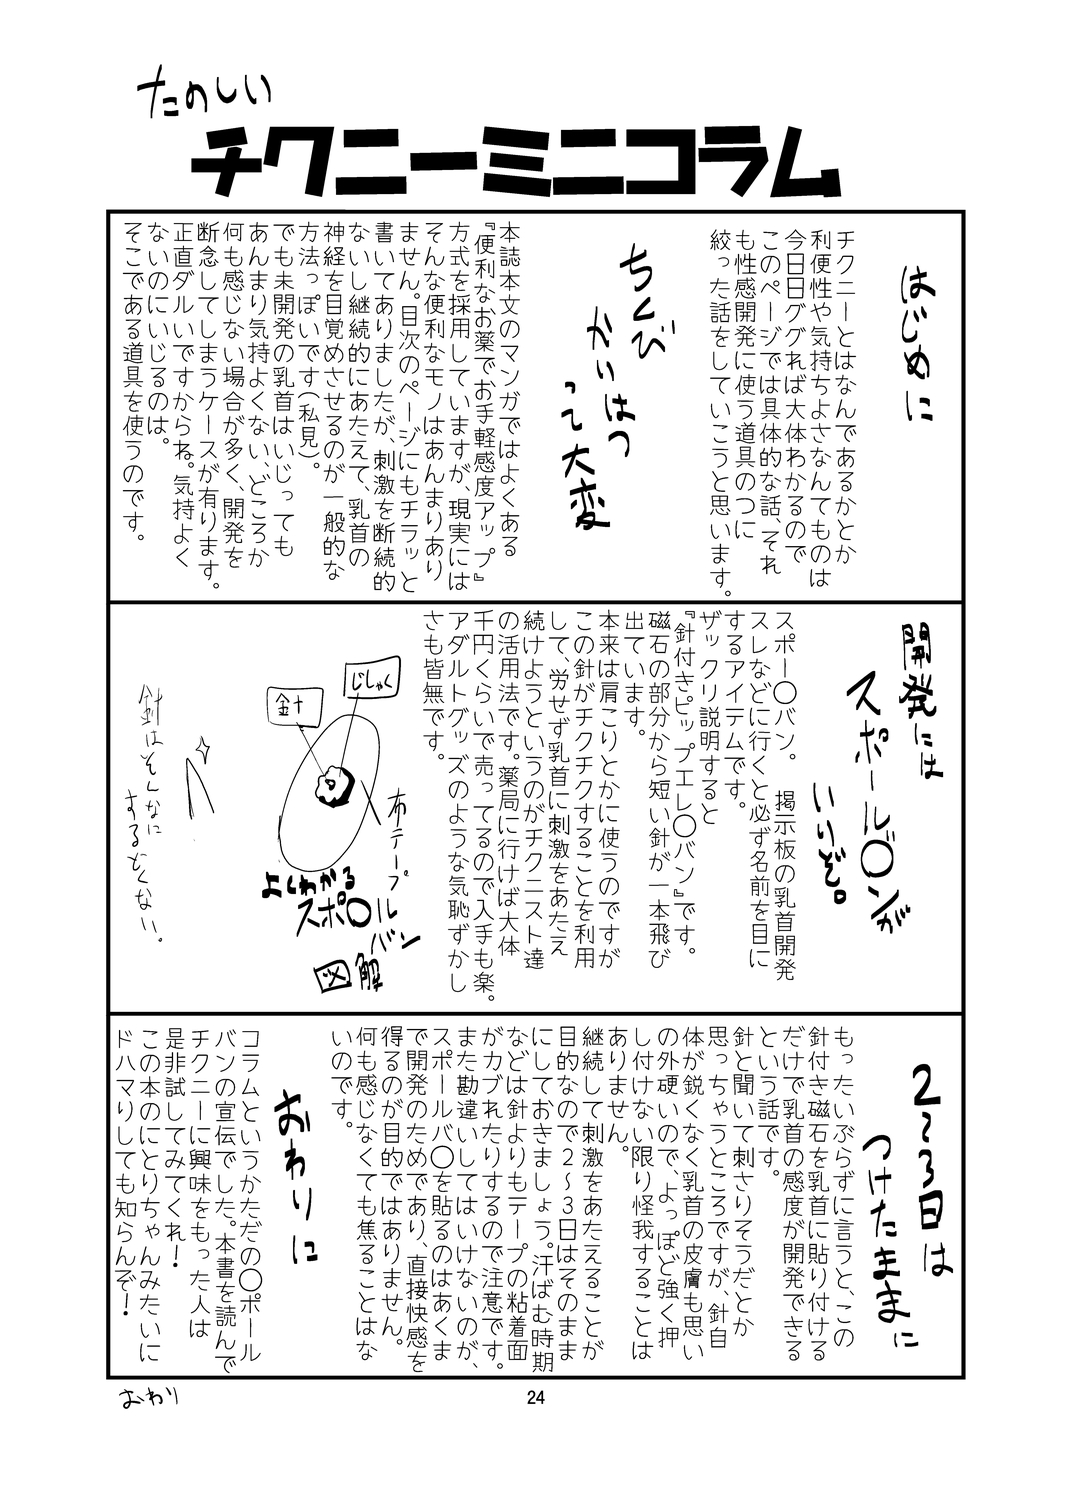 たのしい
チクニーミニコラム
はじめに
チクニーとはなんであるかとか
利便性や気持ちよさなんてものは
今日日ググれば大体わかるので
このページでは具体的な話、それ
も性感開発に使う道具のつに
絞った話をしていこうと思います。
ちくび
かいはつ
って大変
本誌本文のマンガではよくある
『便利なお薬でお手軽感度アップ』
方式を採用していますが、現実には
そんな便利なモノはあんまりあり
ません。目次のページにもチラッと
書いてありましたが、刺激を断続的
ないし継続的にあたえて、乳首の
神経を目覚めさせるのが一般的な
方法っぽいです(私見)。
でも未開発の乳首はいじっても
あんまり気持よくない、どころか
何も感じない場合が多く、開発を
断念してしまうケースが有ります。
正直ダルいですからね。気持よく
ないのにいじるのは。
そこである道具を使うのです。
開発には
スポール〇ンが
いりぞ。
スポー〇バン。 掲示板の乳首開発
スレなどに行くと必ず名前を目に
するアイテムです。
ザックリ説明すると
『針付きピップエレ〇バン』です。
磁石の部分から短い針が一本飛び
出ています。
本来は肩こりとかに使うのですが
この針がチクチクすることを利用
して、労せず乳首に刺激をあたえ
続けようというのがチクニスト達
の活用法です。薬局に行けば大体
千円くらいで売ってるので入手も楽。
アダルトグッズのような気恥ずかし
さも皆無です。
じしゃく
針
布テープ
よくわかる
スポ〇ル
バン
図解
針はそんなに
するどくない。
2〜3日は
つけたままに
もったいぶらずに言うと、この
針付き磁石を乳首に貼り付ける
だけで乳首の感度が開発できる
という話です。
針と聞いて刺さりそうだとか
思っちゃうところですが、針自
体が鋭くなく乳首の皮膚も思い
の外硬いので、よっぽど強く押
し付けない限り怪我することは
ありません。
継続して刺激をあたえることが
目的なので2〜3日はそのまま
にしておきましょう。汗ばむ時期
などは針よりもテープの粘着面
がカブれたりするので注意です。
また勘違いしてはいけないのが、
スポールバ〇を貼るのはあくま
で開発のためであり、直接快感を
得るのが目的ではありません。
何も感じなくても焦ることはな
いのです。
おわりに
コラムというかただの〇ポール
バンの宣伝でした。本書を読んで
チクニーに興味をもった人は
是非試してみてくれ！
この本のにとりちゃんみたいに
ドハマりしても知らんぞ！
おわり
24